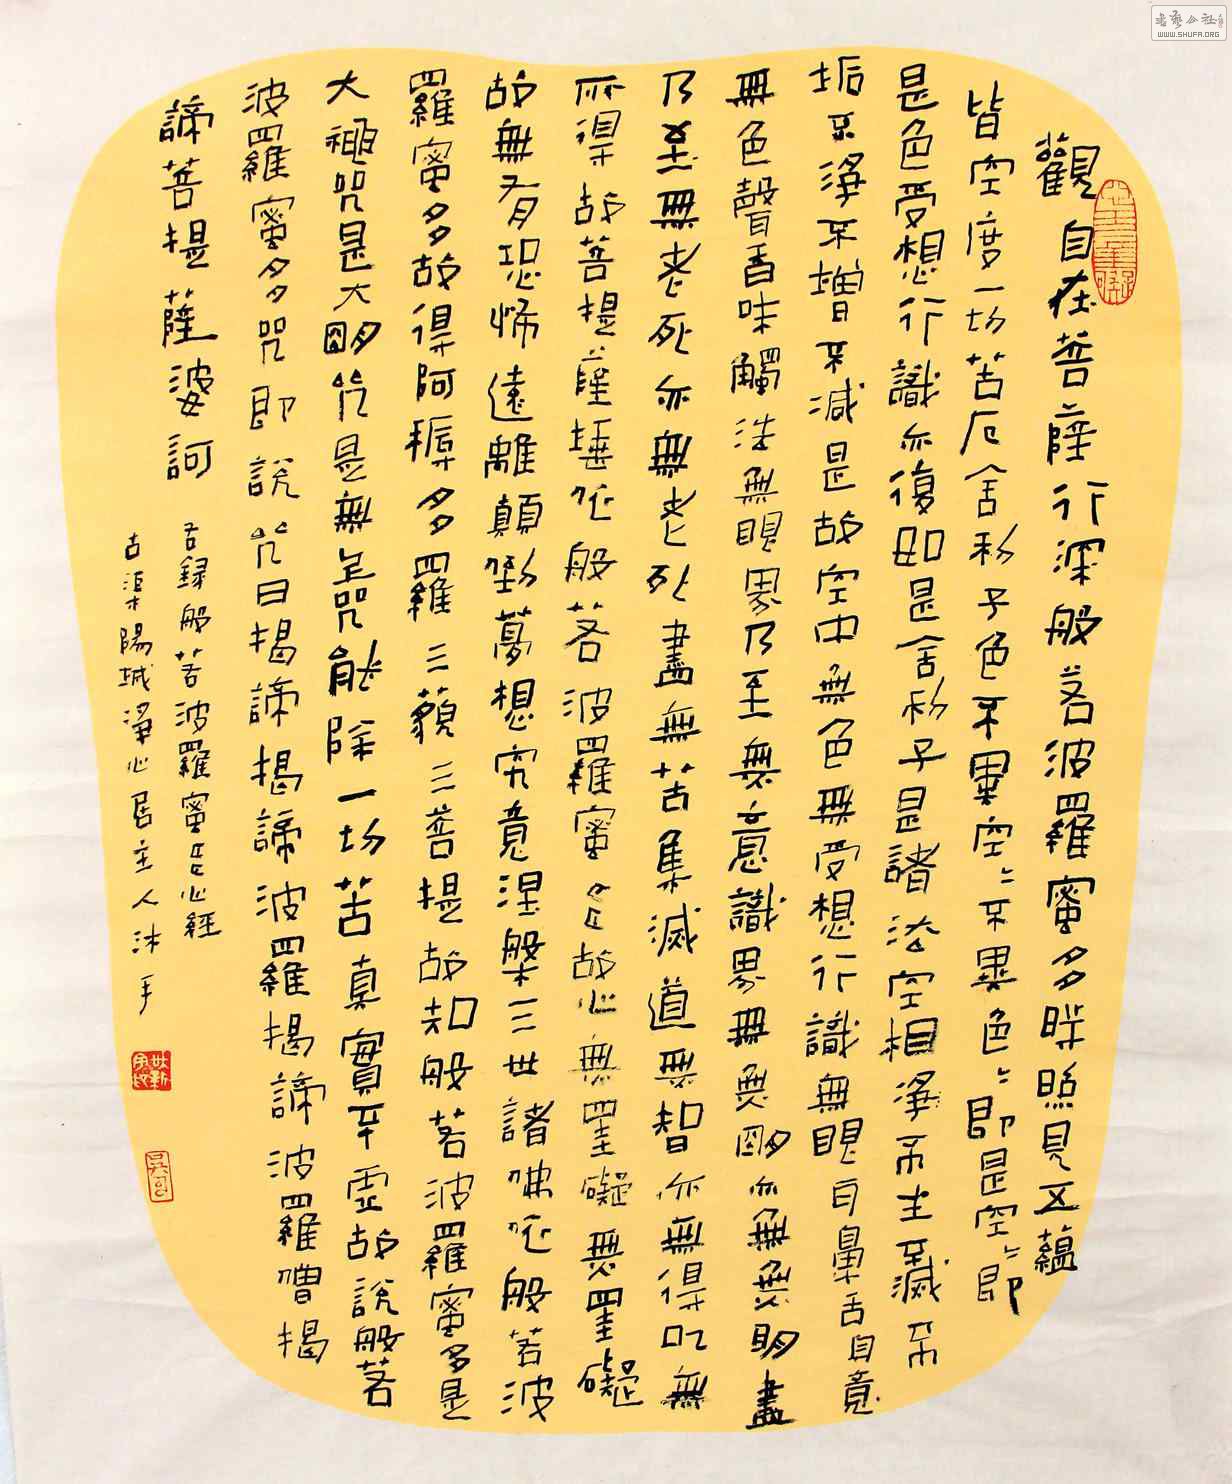 觀自在菩薩行深般若波羅蜜多時照見五蘊
皆空度一切苦厄舍利子色不異空〻不異色〻即是空〻即
是色受想行識亦復如是舍利子是諸法空相淨不生不滅不
垢不淨不增不減是故空中無色無受想行識無眼耳鼻舌身意
無色聲香味觸法無眼界乃至無意識界無無明亦無無明盡
乃至無老死亦無老死盡無苦集滅道無智亦無得以無
所得故菩提薩埵依般若波羅蜜多故心無罣礙無罣礙
故無有恐怖遠離顛倒夢想究竟涅槃三世諸佛依般若波
羅蜜多故得阿耨多羅三藐三菩提故知般若波羅蜜多是
大神咒是大明咒是無上咒能除一切苦真實不虛故說般若
波羅蜜多咒即說咒曰揭諦揭諦波羅揭諦波羅僧揭
諦菩提薩婆訶
右録般若波羅蜜多心經
古渠陽城淨心居主人沐手
書藝公社
WWW.SHUFA.ORG